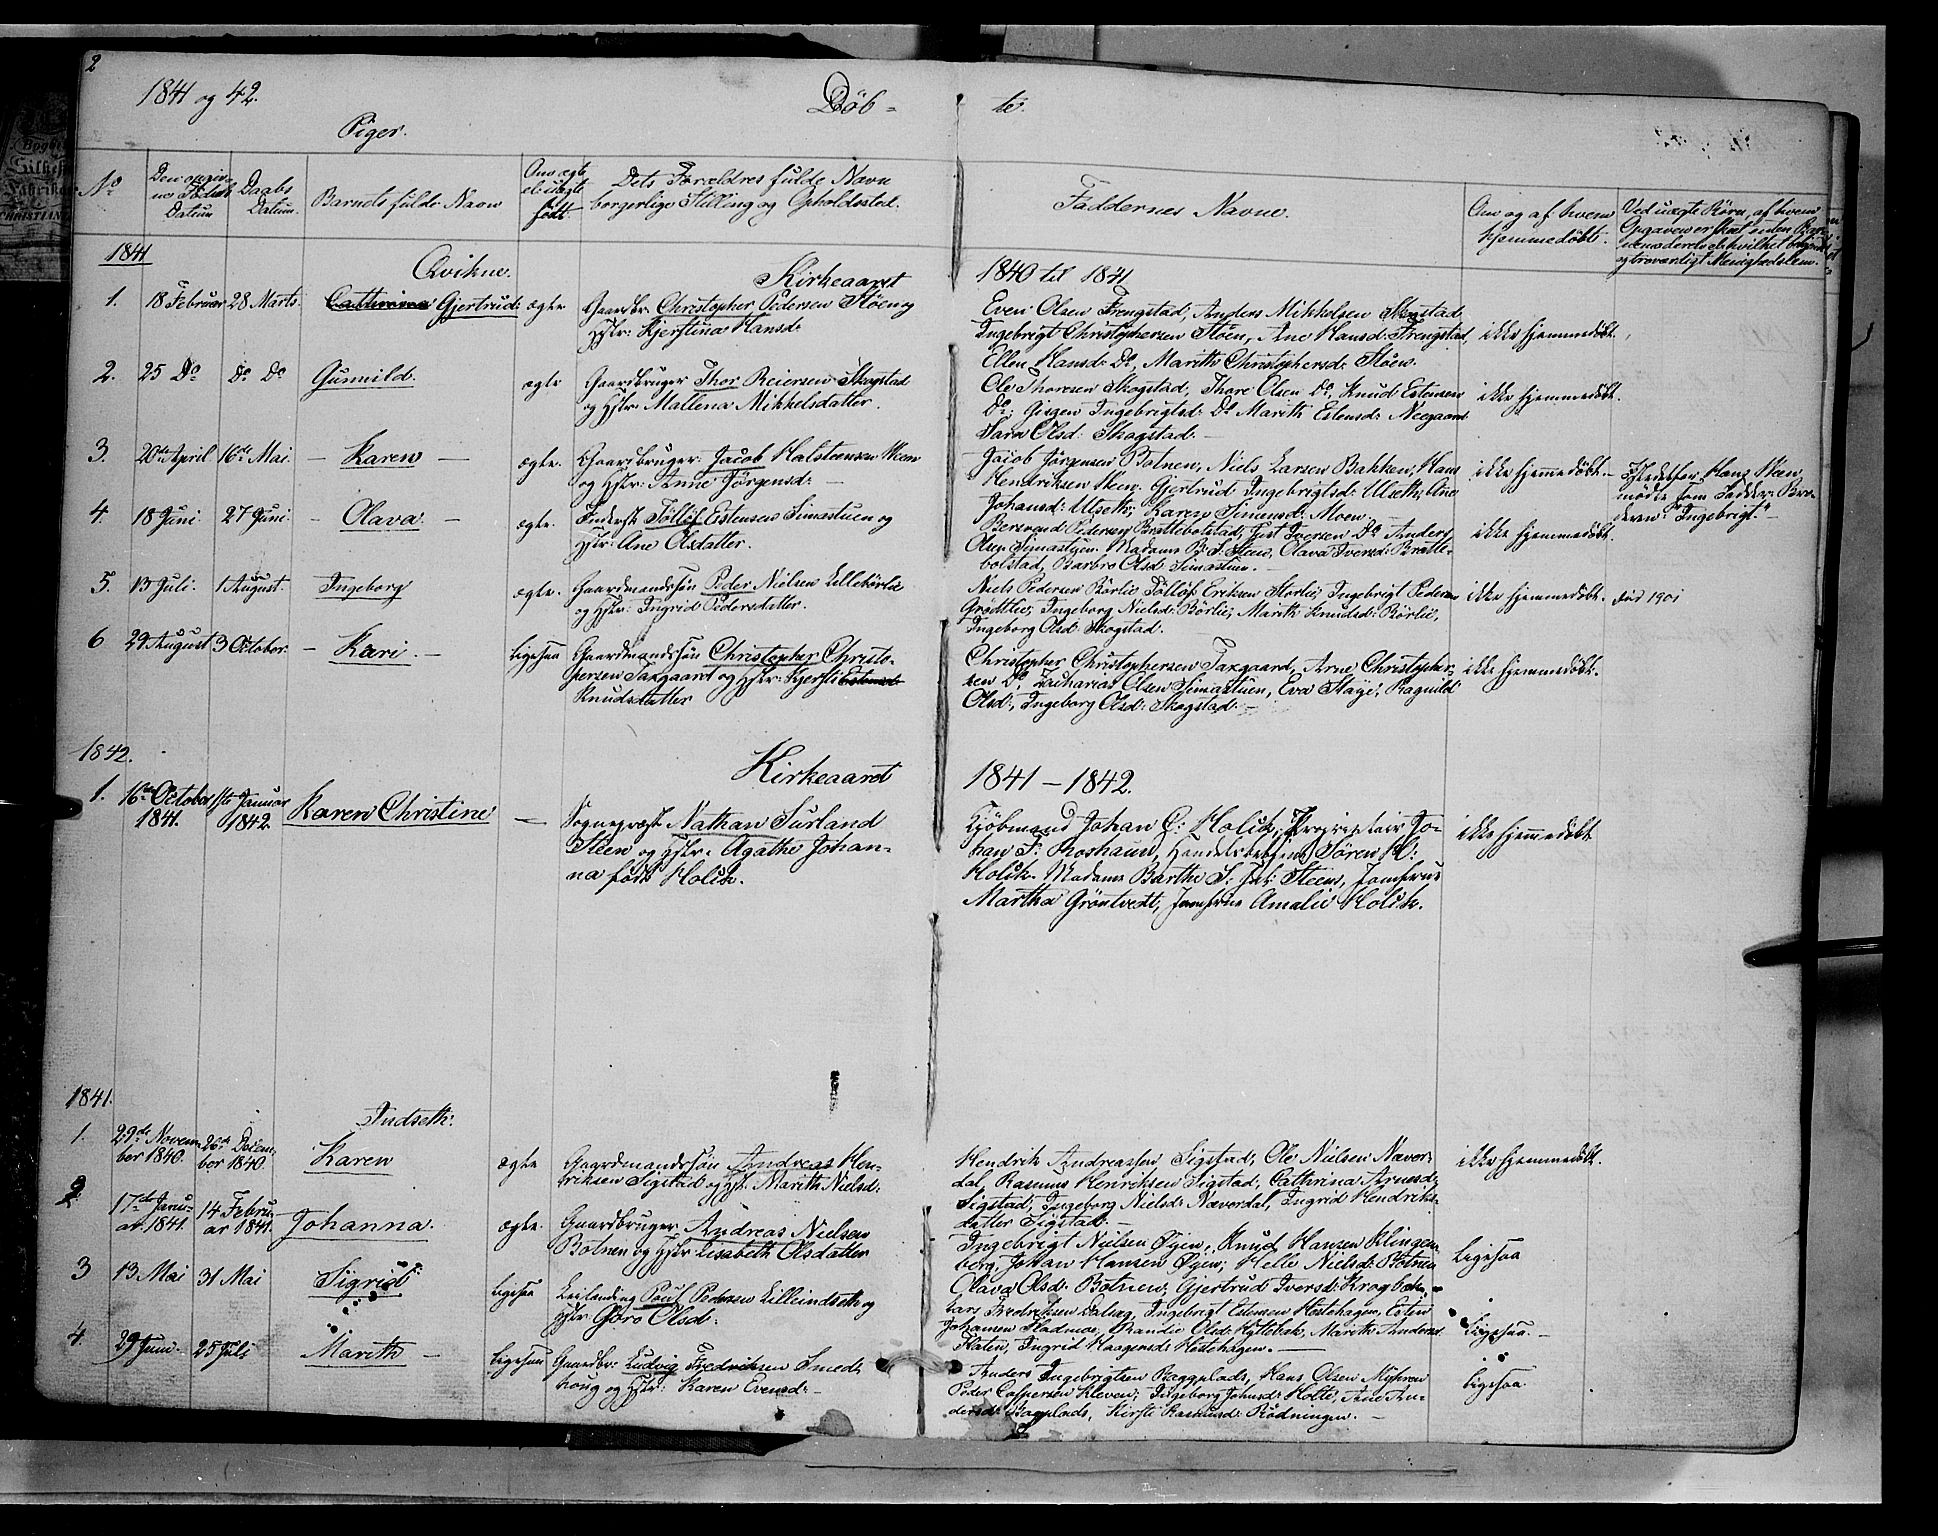 2
1841 og 42.
Döb-
te.
Piger.
No
Den opgiv-
ne Fødsels
Datum
Daabs
Datum.
Barnets fulde Navn
Om ægte
el. uægte
født.
Dets Forældres fulde Navn
borgerlige Stilling og Opholdssted.
Faddernes Navne.
Om og af hvem
hjemmedøbt.
Ved uægte Børn, af hvem
Opgaven er skeet
og troværdigt Menighedslem.
1841
Qvikne.
Kirkeaaret
1840 til 1841
1.
18 Februar
28 Marts.
Cathrina Gjertrud:
ægte
Gaardbr: Christopher Pedersen Støen og
Hstr: Kjerstina Hansd:
Even Olsen Frengstad, Anders Mikkelsen Skogstad
Ingebrigt Christophersen Støen, Ane Hansd: Frengstad,
Ellen Hansd: Do, Marith Christophersd: Støen.
ikke hjemmedöbt.
2.
25 Do
Do Do
Gunnild.
ægte
Gaardbruger Thor Reiersen Skogstad
og Hstr: Mallena Mikkelsdatter.
Ole Thoresen Skogstad, Thore Olsen Do, Knud Estensen
Do; Gisgen Ingebrigtsd: Do Marith Estensd: Neegaard
Sara Olsd: Skogstad. —
ikke hjemmedöbt.
3.
20de April
16de Mai.
— Karen —
ægte.
Gaardbruger: Jacob Halsteensen Steen
og Hstr: Anne Jörgensd: —
Jacob Jörgensen Botnen, Niels Larsen Bakken, Hans
Hendriksen Steen. Gjertrud Ingebrigtsd: Ulseth, Ane
Johansd: Ulseth, Karen Simensd: Moen.
ikke hjemmedöbt. —
Istedetfor Hans Steen
mödte som Fadder: Bro-
deren: "Ingebrigt." —
4.
18 Juni.
27 Juni.
— Olava. —
ægte.
Inderst Töllöf Estensen Simastuen og
Hstr: Ane Olsdatter.
Berevend Pedersen Brattebolstad, Just Iversen Do Anders
Olsen Simastuen. Madame B: S: Steen, Olava Iversd: Bratte-
bolstad, Barbro Olsd: Simastuen. —
ikke hjemmedöbt.
5.
13 Juli.
1 August.
Ingeborg
ægte.
Gaardmandssön Peder Nielsen Lillebörlie
og Hstr: Ingrid Pedersdatter.
Niels Pedersen Börlie, Töllöf Eriksen Storlie, Ingebrigt Pedersen
Gröttlie, Ingeborg Nielsd: Börlie, Marith Knudsd: Börlie,
Ingeborg Olsd: Skogstad.
ikke hjemmedöbt.
död 1901
6
29 August
3 October.
— Kari. —
ligesaa
Gaardmandssön Christopher Christo-
phersen Taxgaard og Hstr: Kjersti Estensd:
Knudsdatter
Christopher Christophersen Taxgaard, Arne Christopher-
sen Do, Zacharias Olsen Simastuen, Eva Staye, Ragnild
Olsd:, Ingeborg Olsd: Skogstad. —
ikke hjemmedöbt.
1842.
Kirkeaaret
1841 — 1842.
1.
16de October
1841.
1ste Januar
1842.
Karen Christine
—
Sognepræst Nathan Surland
Steen og Hstr: Agathe Johan-
na födt Holck.
Kjöbmand Johan C: Holck, Proprietair Jo-
han F: Roshaun, Handelsbetjent Sören H:
Holck. Madame Barthe S: Steen, Jomfrue
Martha Gröntvedt, Jomfrue Amalie Holck.
ikke hjemmedöbt
1841.
Indseth:
1.
29de Novem-
ber 1840.
26de Decem-
ber 1840.
Karen
ægte
Gaardmandssön Andreas Hen-
driksen Sigstad og Hstr: Marith Nielsd:
Hendrik Andreassen Sigstad, Ole Nielsen Næver-
dal, Rasmus Henriksen Sigstad, Cathrina Arnesd:
Sigstad, Ingeborg Nielsd: Næverdal, Ingrid Hendriks-
datter Sigstad. —
ikke hjemmedöbt.
2.
17de Janu-
ar 1841.
14 Febru-
ar 1841.
Johanna.
ægte
Gaardbruger Andreas Nielsen
Botnen og Hstr Lisabeth Olsdatter
Ingebrigt Nielsen Öyen, Knud Hansen Klingen-
berg, Johan Hansen Öyen; Helle Nielsd: Botnen
Olava Olsd: Botnen, Gjertrud Iversd: Krogbak. —
Ligesaa
3
13 Mai
31 Mai
Sigrid
ligesaa
Leilending Poul Pedersen Lilleindseth og
Hstr: Göro Olsd:
Lars Fredriksen Dalseg, Ingebrigt Estensen Hestehagen, Esten
Johansen Stadmoe, Randie Olsd: Kyllobak, Marith Andersd.
Flaten, Ingrid Haagensd: Hestehagen. —
Ligesaa. —
4.
29 Juni.
25 Juli
Marith —
ligesaa
Gaardbr: Ludvig Fredriksen Smedt
houg og Hstr: Karen Evensd: —
Anders Ingebrigtsen Baggplads, Hans Olsen Myhren
Peder Caspersen Kleven, Ingeborg Johnsd: Holte, Ane An-
dersd: Bagplads, Kirsti Rasmusd: Rödningen. —
ligesaa